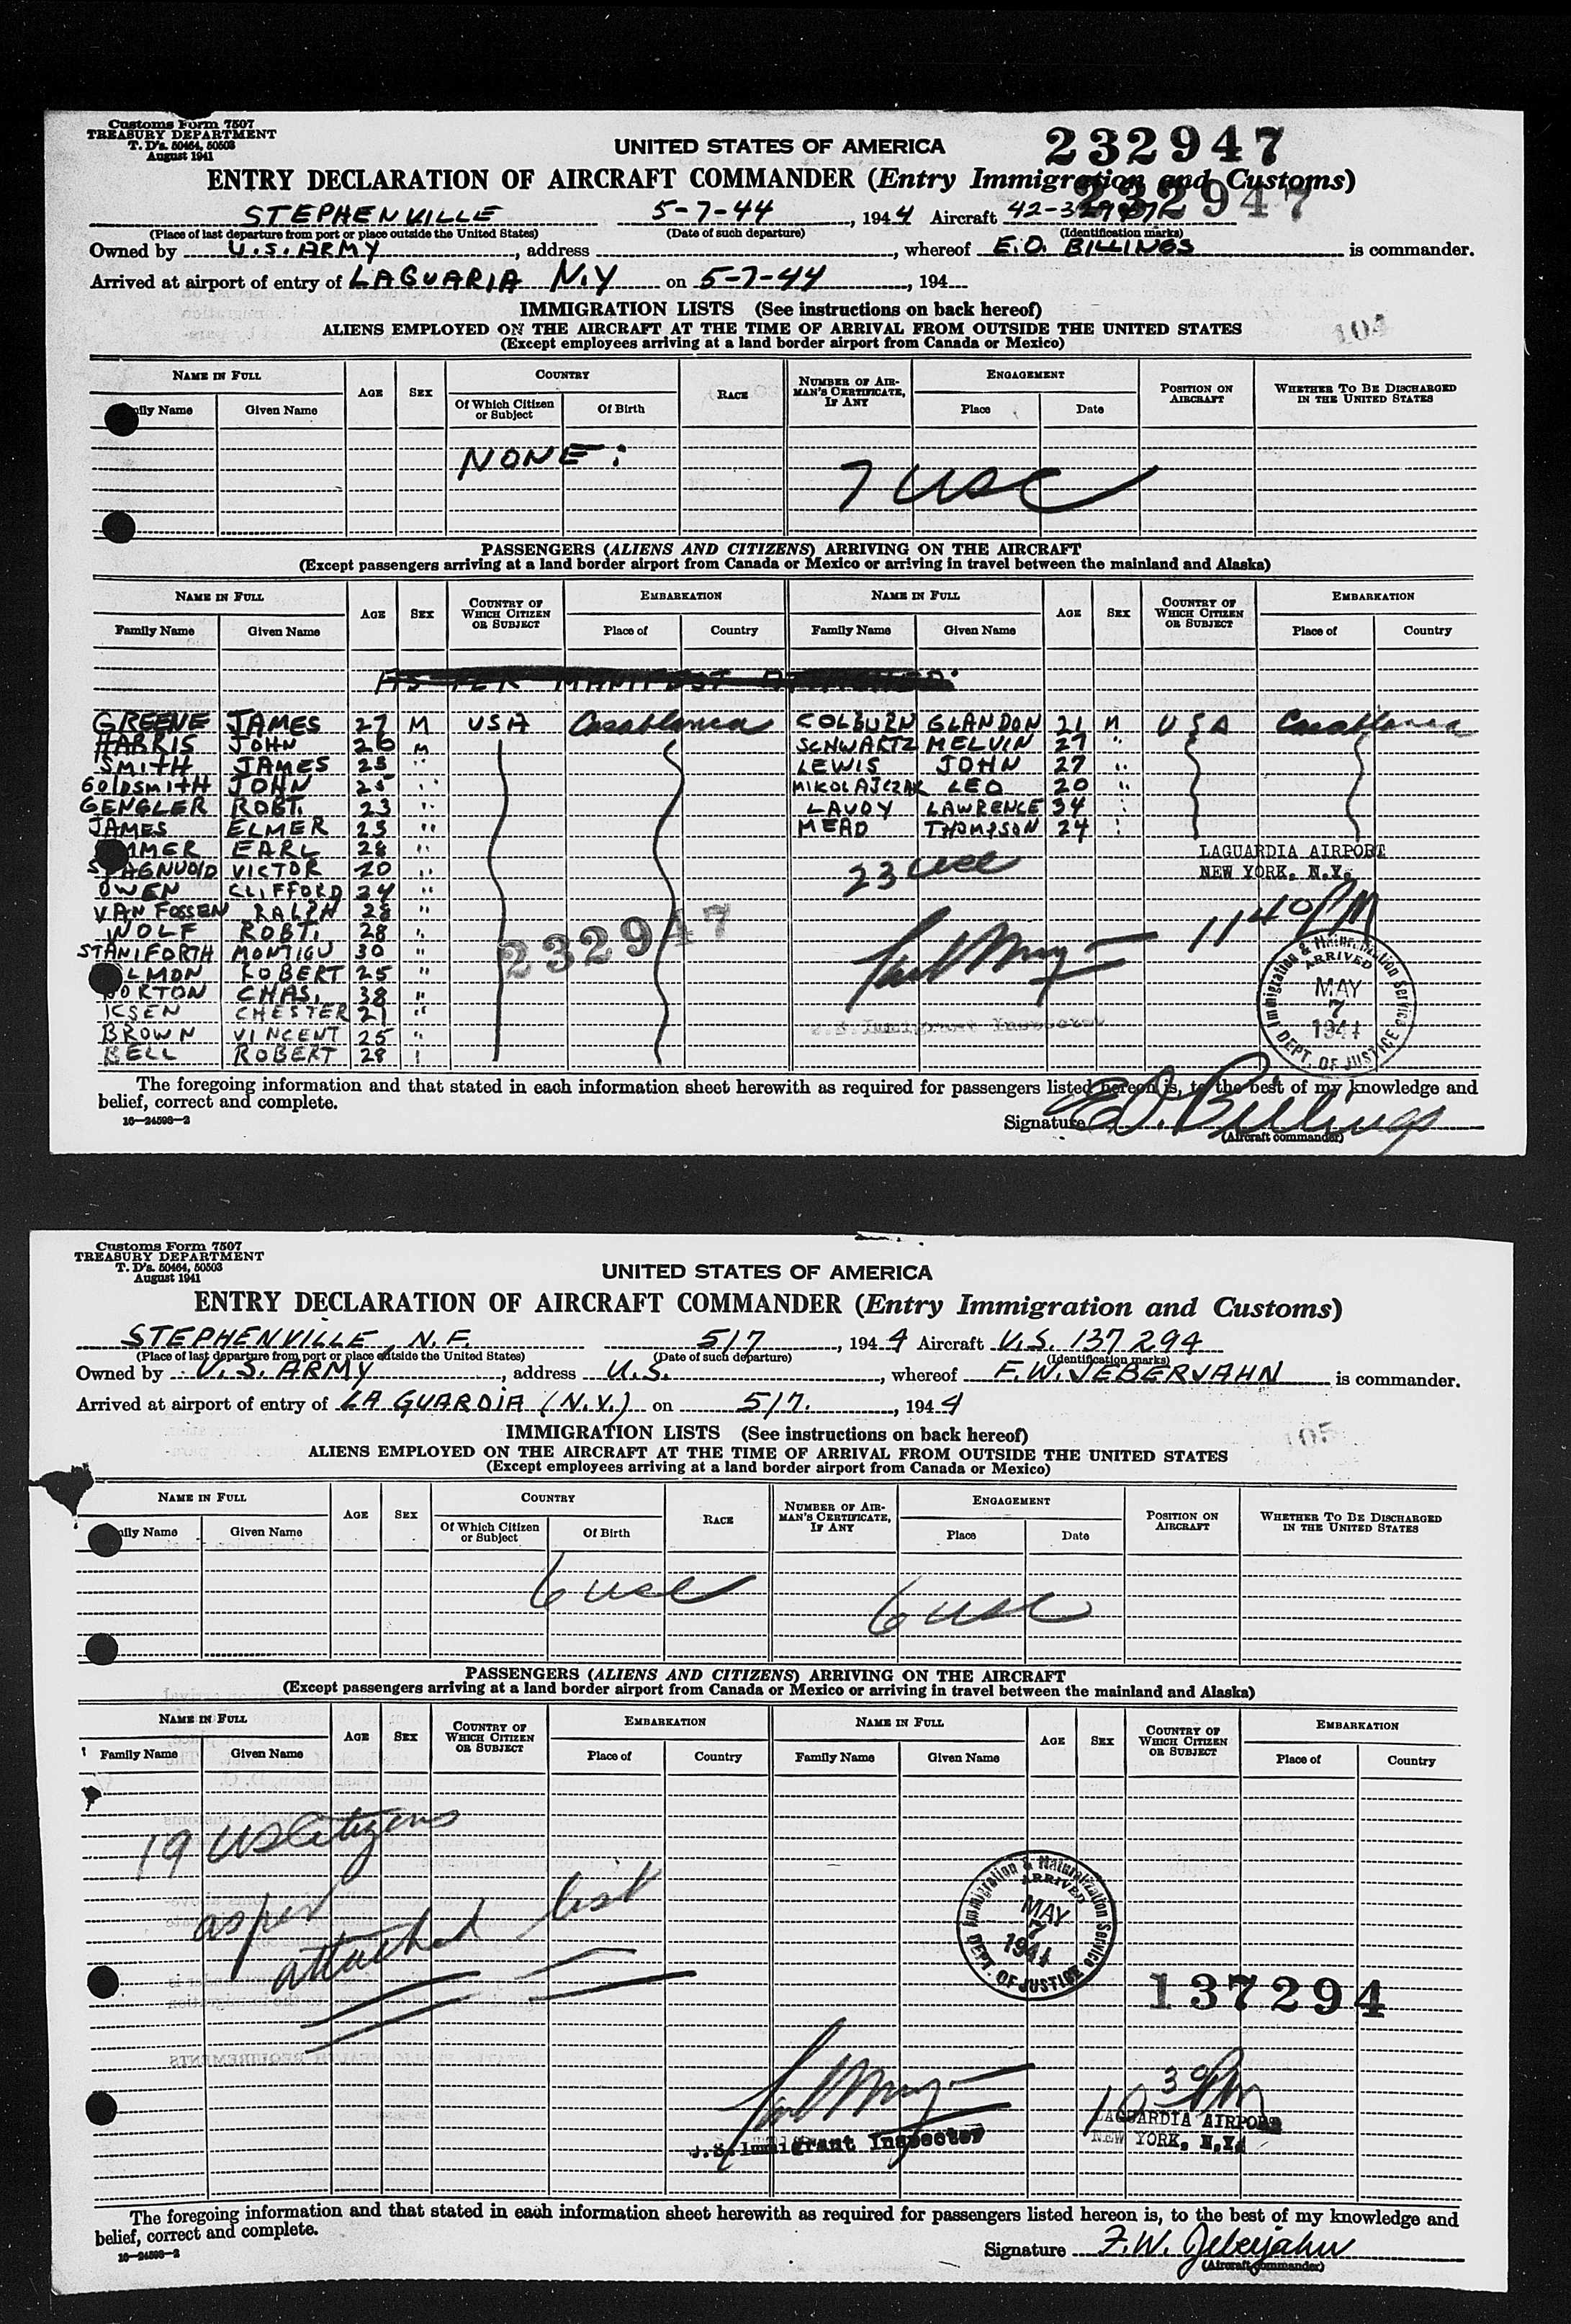 Customs Form 7507
TREASURY DEPARTMENT
T. D's. 50464, 50503
August 1941
UNITED STATES OF AMERICA
232947
ENTRY DECLARATION OF AIRCRAFT COMMANDER (Entry Immigration and Customs)
232947
STEPHENVILLE 5-7-44, 1944 Aircraft 42-32947
(Place of last departure from port or place outside the United States) (Date of such departure) (Identification marks)
Owned by U.S. ARMY, address, whereof E.O. BILLINGS is commander.
Arrived at airport of entry of LAGUARIA N.Y on 5-7-44, 194
IMMIGRATION LISTS (See instructions on back hereof)
104
ALIENS EMPLOYED ON THE AIRCRAFT AT THE TIME OF ARRIVAL FROM OUTSIDE THE UNITED STATES
(Except employees arriving at a land border airport from Canada or Mexico)
NAME IN FULL AGE SEX COUNTRY RACE NUMBER OF AIRMAN'S CERTIFICATE, IF ANY ENGAGEMENT POSITION ON AIRCRAFT WHETHER TO BE DISCHARGED IN THE UNITED STATES
ily Name Given Name Of Which Citizen or Subject Of Birth Place Date
NONE:
7 USC
PASSENGERS (ALIENS AND CITIZENS) ARRIVING ON THE AIRCRAFT
(Except passengers arriving at a land border airport from Canada or Mexico or arriving in travel between the mainland and Alaska)
NAME IN FULL AGE SEX COUNTRY OF WHICH CITIZEN OR SUBJECT EMBARKATION NAME IN FULL AGE SEX COUNTRY OF WHICH CITIZEN OR SUBJECT EMBARKATION
Family Name Given Name Place of Country Family Name Given Name Place of Country
AS PER MANIFEST
GREENE JAMES 27 M USA Casablanca COLBURN GLANDON 21 M USA Casablanca
HARRIS JOHN 26 M SCHWARTZ MELVIN 27 "
SMITH JAMES 23 " LEWIS JOHN 27 "
GOLDSMITH JOHN 25 " MIKOLAJCZAK LEO 20 "
GENGLER ROBT. 23 " LAVOY LAWRENCE 34 "
JAMES ELMER 23 " MEAD THOMPSON 24 "
MMER EARL 28 "
S AGNUOID VICTOR 20 "
OWEN CLIFFORD 24 "
VAN FOSSEN RALPH 28 "
WOLF ROBT. 28 "
STANIFORTH MONTIGU 30 "
LMON ROBERT 25 "
ORTON CHAS. 38 "
ICSEN CHESTER 21 "
BROWN VINCENT 25 "
BELL ROBERT 28 "
23 USC
LAGUARDIA AIRPORT
NEW YORK, N.Y.
1140PM
232947
Immigration & Naturalization Service
ARRIVED
MAY
7
1944
DEPT. OF JUSTICE
U.S. Immigrant Inspector
The foregoing information and that stated in each information sheet herewith as required for passengers listed hereon is, to the best of my knowledge and
belief, correct and complete.
16—24598-2
Signature E.O. Billings
(Aircraft commander)
Customs Form 7507
TREASURY DEPARTMENT
T. D's. 50464, 50503
August 1941
UNITED STATES OF AMERICA
ENTRY DECLARATION OF AIRCRAFT COMMANDER (Entry Immigration and Customs)
STEPHENVILLE, N.F. 5/7, 1944 Aircraft U.S. 137294
(Place of last departure from port or place outside the United States) (Date of such departure) (Identification marks)
Owned by U.S. ARMY, address U.S., whereof F.W. JEBERJAHN is commander.
Arrived at airport of entry of LA GUARDIA (N.Y.) on 5/7., 1944
IMMIGRATION LISTS (See instructions on back hereof)
105
ALIENS EMPLOYED ON THE AIRCRAFT AT THE TIME OF ARRIVAL FROM OUTSIDE THE UNITED STATES
(Except employees arriving at a land border airport from Canada or Mexico)
NAME IN FULL AGE SEX COUNTRY RACE NUMBER OF AIRMAN'S CERTIFICATE, IF ANY ENGAGEMENT POSITION ON AIRCRAFT WHETHER TO BE DISCHARGED IN THE UNITED STATES
ily Name Given Name Of Which Citizen or Subject Of Birth Place Date
6 USC 6 USC
PASSENGERS (ALIENS AND CITIZENS) ARRIVING ON THE AIRCRAFT
(Except passengers arriving at a land border airport from Canada or Mexico or arriving in travel between the mainland and Alaska)
NAME IN FULL AGE SEX COUNTRY OF WHICH CITIZEN OR SUBJECT EMBARKATION NAME IN FULL AGE SEX COUNTRY OF WHICH CITIZEN OR SUBJECT EMBARKATION
Family Name Given Name Place of Country Family Name Given Name Place of Country
19 US Citizens
as per
attached list
Immigration & Naturalization Service
ARRIVED
MAY
7
1944
DEPT. OF JUSTICE
137294
10 30 PM
LAGUARDIA AIRPORT
NEW YORK, N.Y.
U.S. Immigrant Inspector
The foregoing information and that stated in each information sheet herewith as required for passengers listed hereon is, to the best of my knowledge and
belief, correct and complete.
16—24598-2
Signature F.W. Jeberjahn
(Aircraft commander)